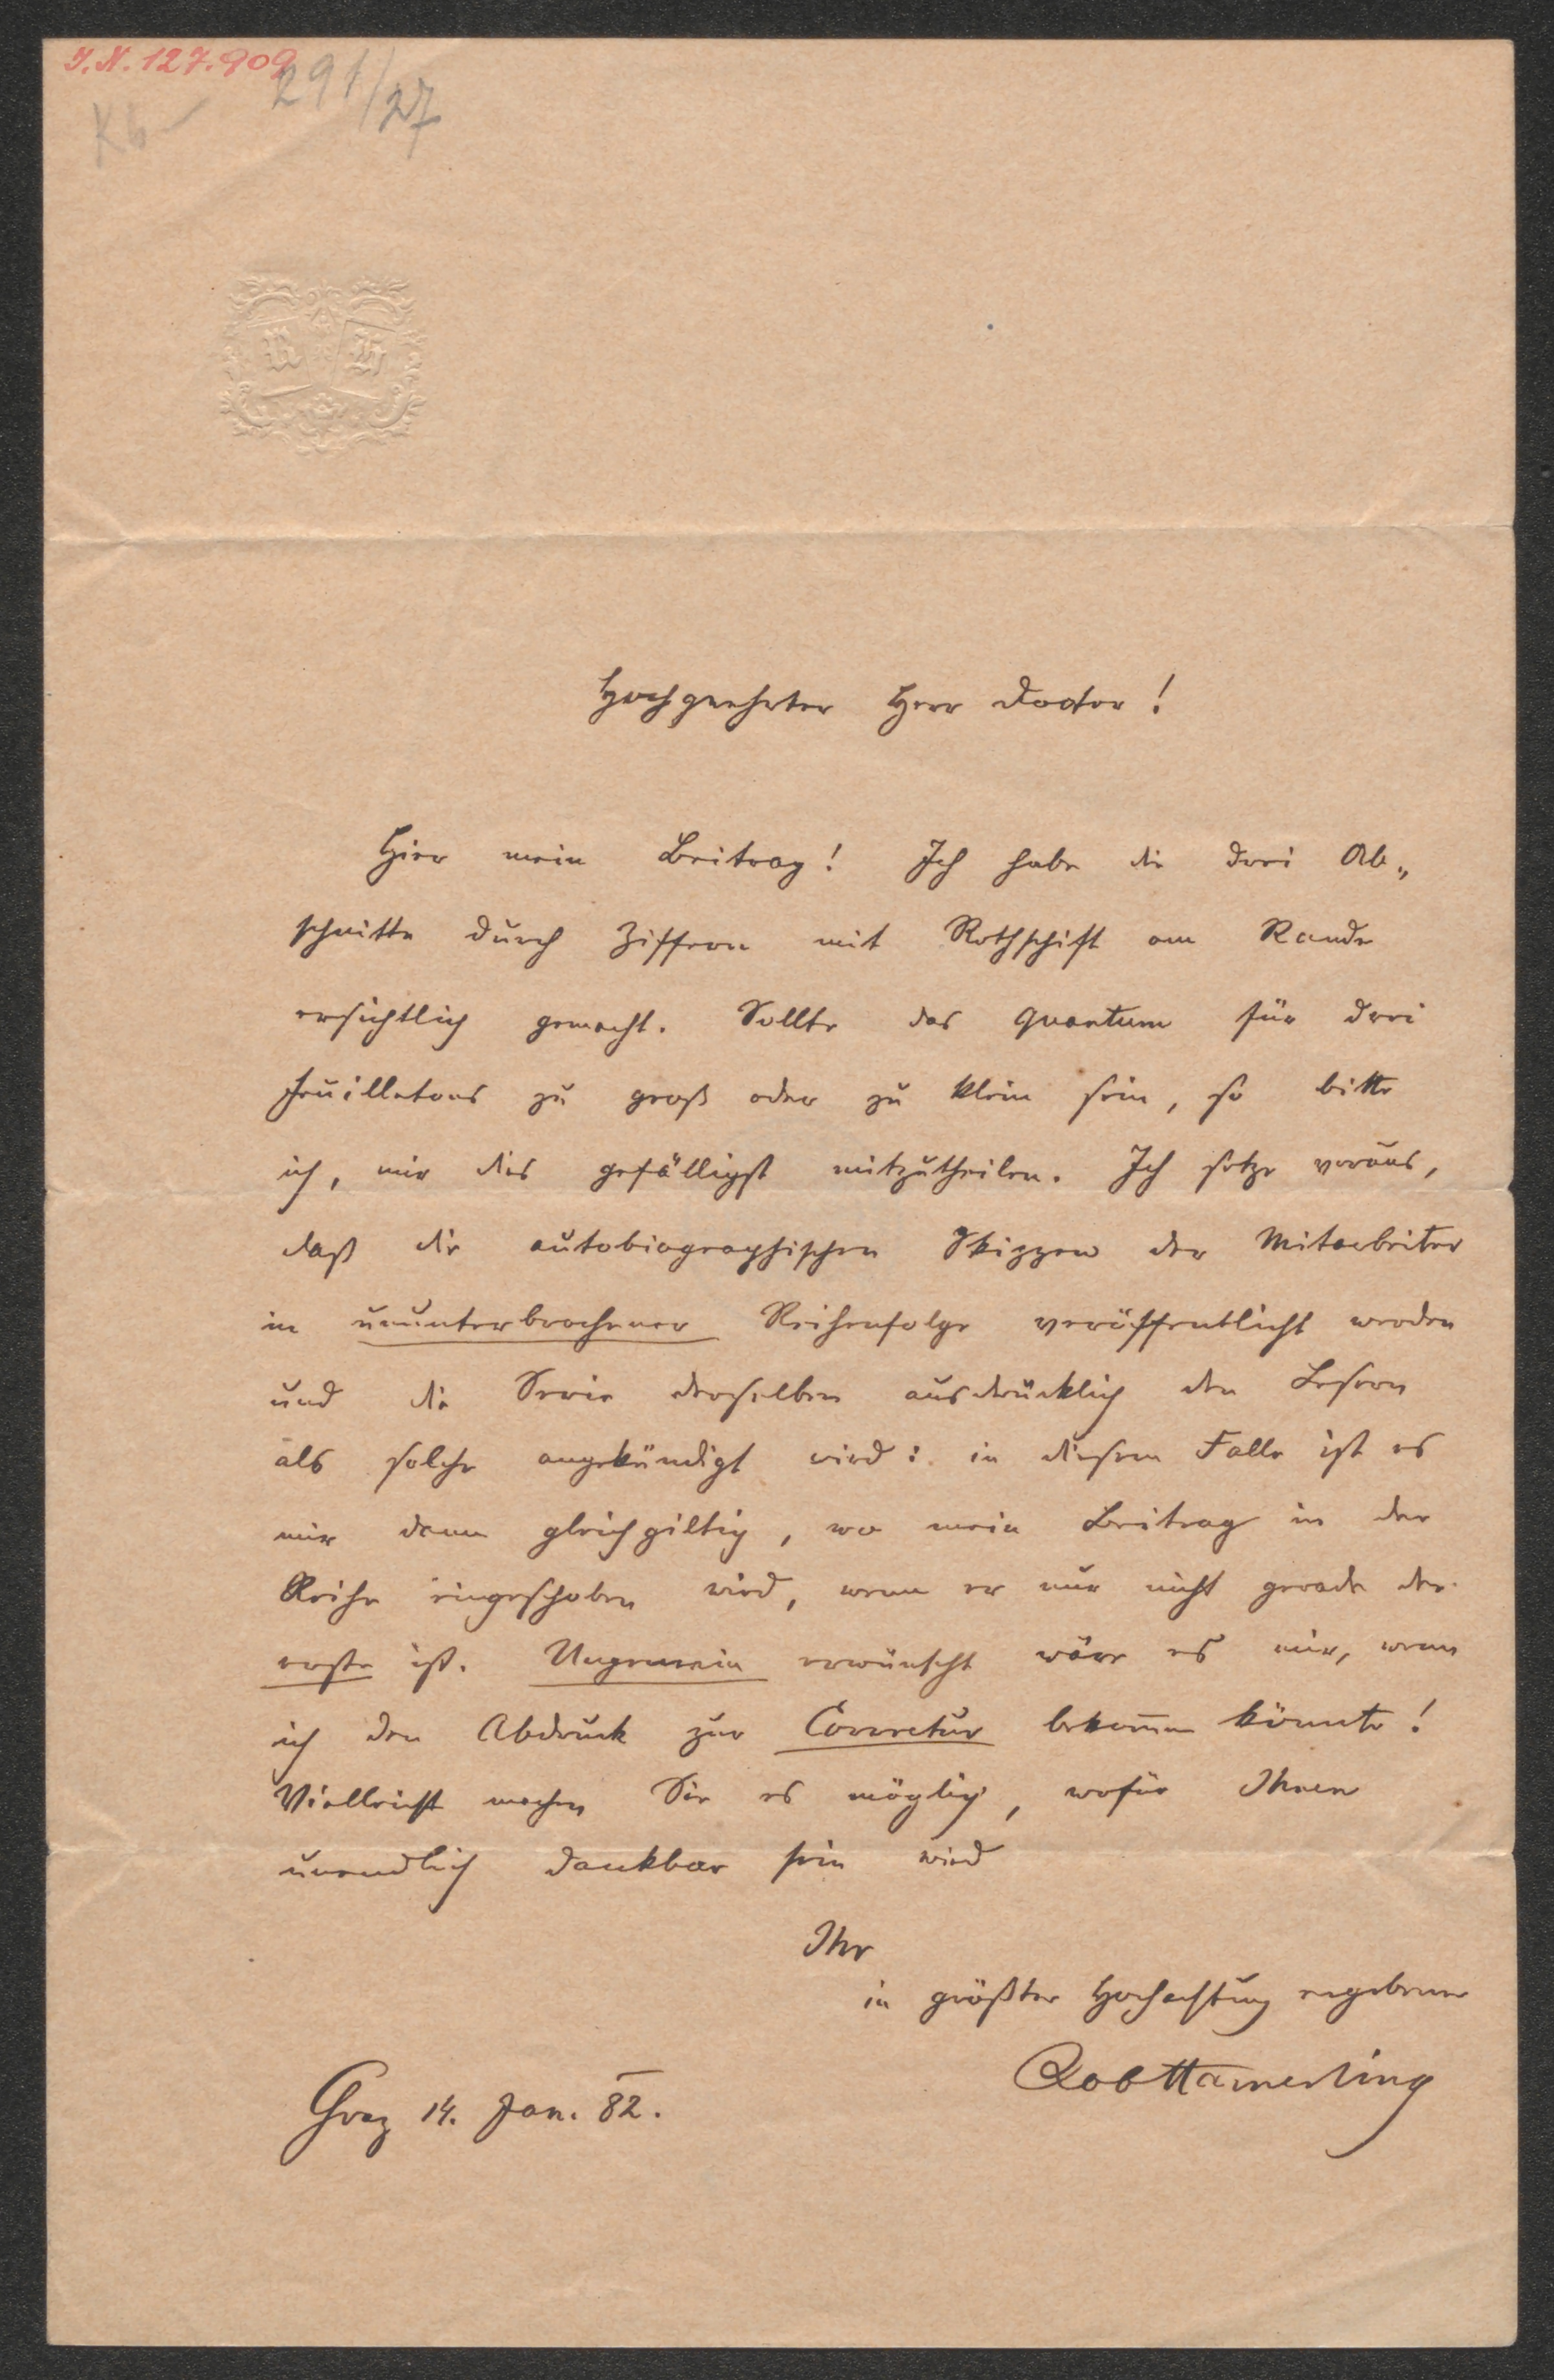 J. N. 127.909
291/27
Kb
R H
Hochgeehrter Herr Doctor!
Hier mein Beitrag! Ich habe die drei Ab„
schnitte durch Ziffern mit Rothschift am Rande
ersichtlich gemacht. Sollte das Quantum für drei
Feuilletons zu groß oder zu klein sein, so bitte
ich, mir dies gefälligst mitzutheilen. Ich setze voraus,
daß die autobiographischen Skizzen der Mitarbeiter
in ununterbrochener Reihenfolge veröffentlicht werden
und die Serie derselben ausdrücklich den Lesern
als solche angekündigt wird: in diesem Falle ist es
mir dann gleichgiltig, wo mein Beitrag in der
Reihe eingeschoben wird, wenn er nur nicht gerade der
erste ist. Ungemein erwünscht wäre es mir, wenn
ich den Abdruck zur Correctur bekom̄en könnte!
Vielleicht machen Sie es möglich, wofür Ihnen
unendlich dankbar sein wird
Ihr
in größter Hochachtung ergebener
RobHamerling
Graz 14. Jan. 82.